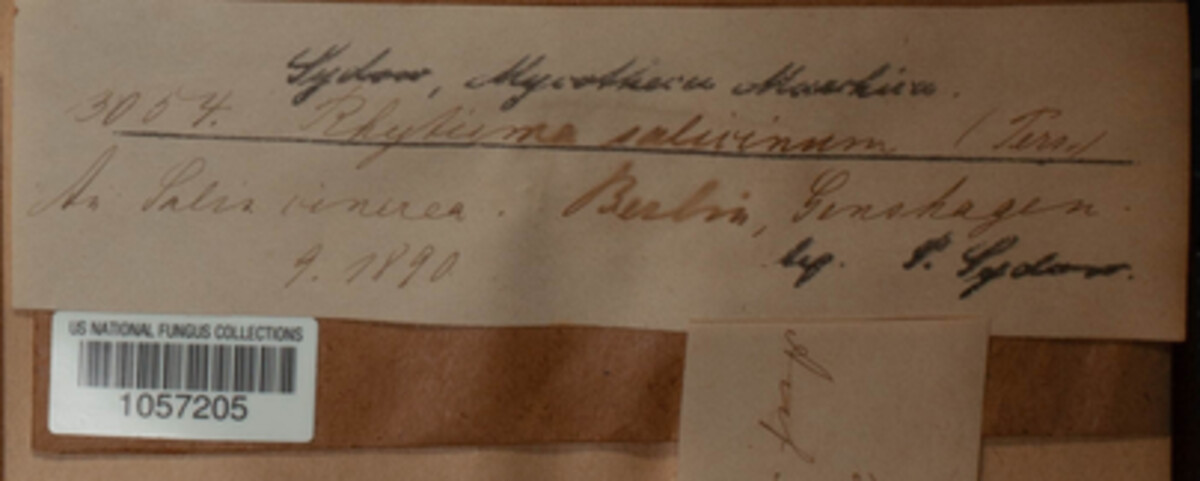 Sydow, Mycotheca Marchica.
3054. Rhytisma salicinum (Pers.)
An Salix cinerea. Berlin, Genshagen.
9. 1890
leg. P. Sydow.
US NATIONAL FUNGUS COLLECTIONS
1057205